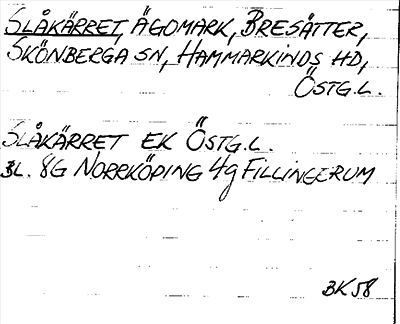 SLÅKÄRRET, ÄGOMARK, BRESÄTTER,
SKÖNBERGA SN, HAMMARKINDS HD,
ÖSTG.L.
SLÅKÄRRET EK ÖSTG.L.
BL. 8G NORRKÖPING 4g FILLINGERUM
BK58